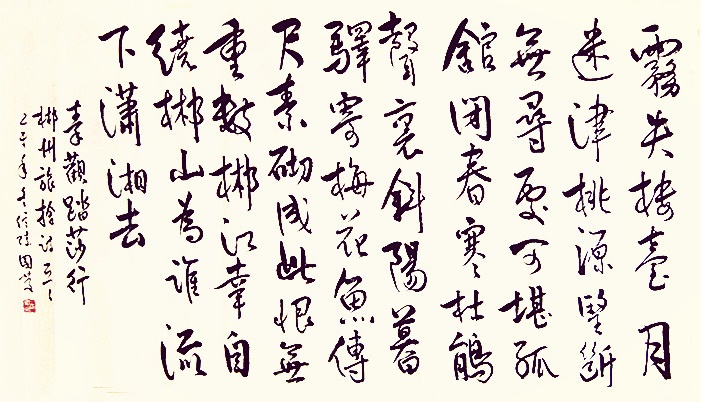 霧失樓臺月
迷津桃源望斷
無尋處可堪孤
館閉春寒杜鵑
聲裏斜陽暮
驛寄梅花魚傳
尺素砌成此恨無
重數郴江幸自
繞郴山為誰流
下瀟湘去
秦觀踏莎行
郴州旅捨詞